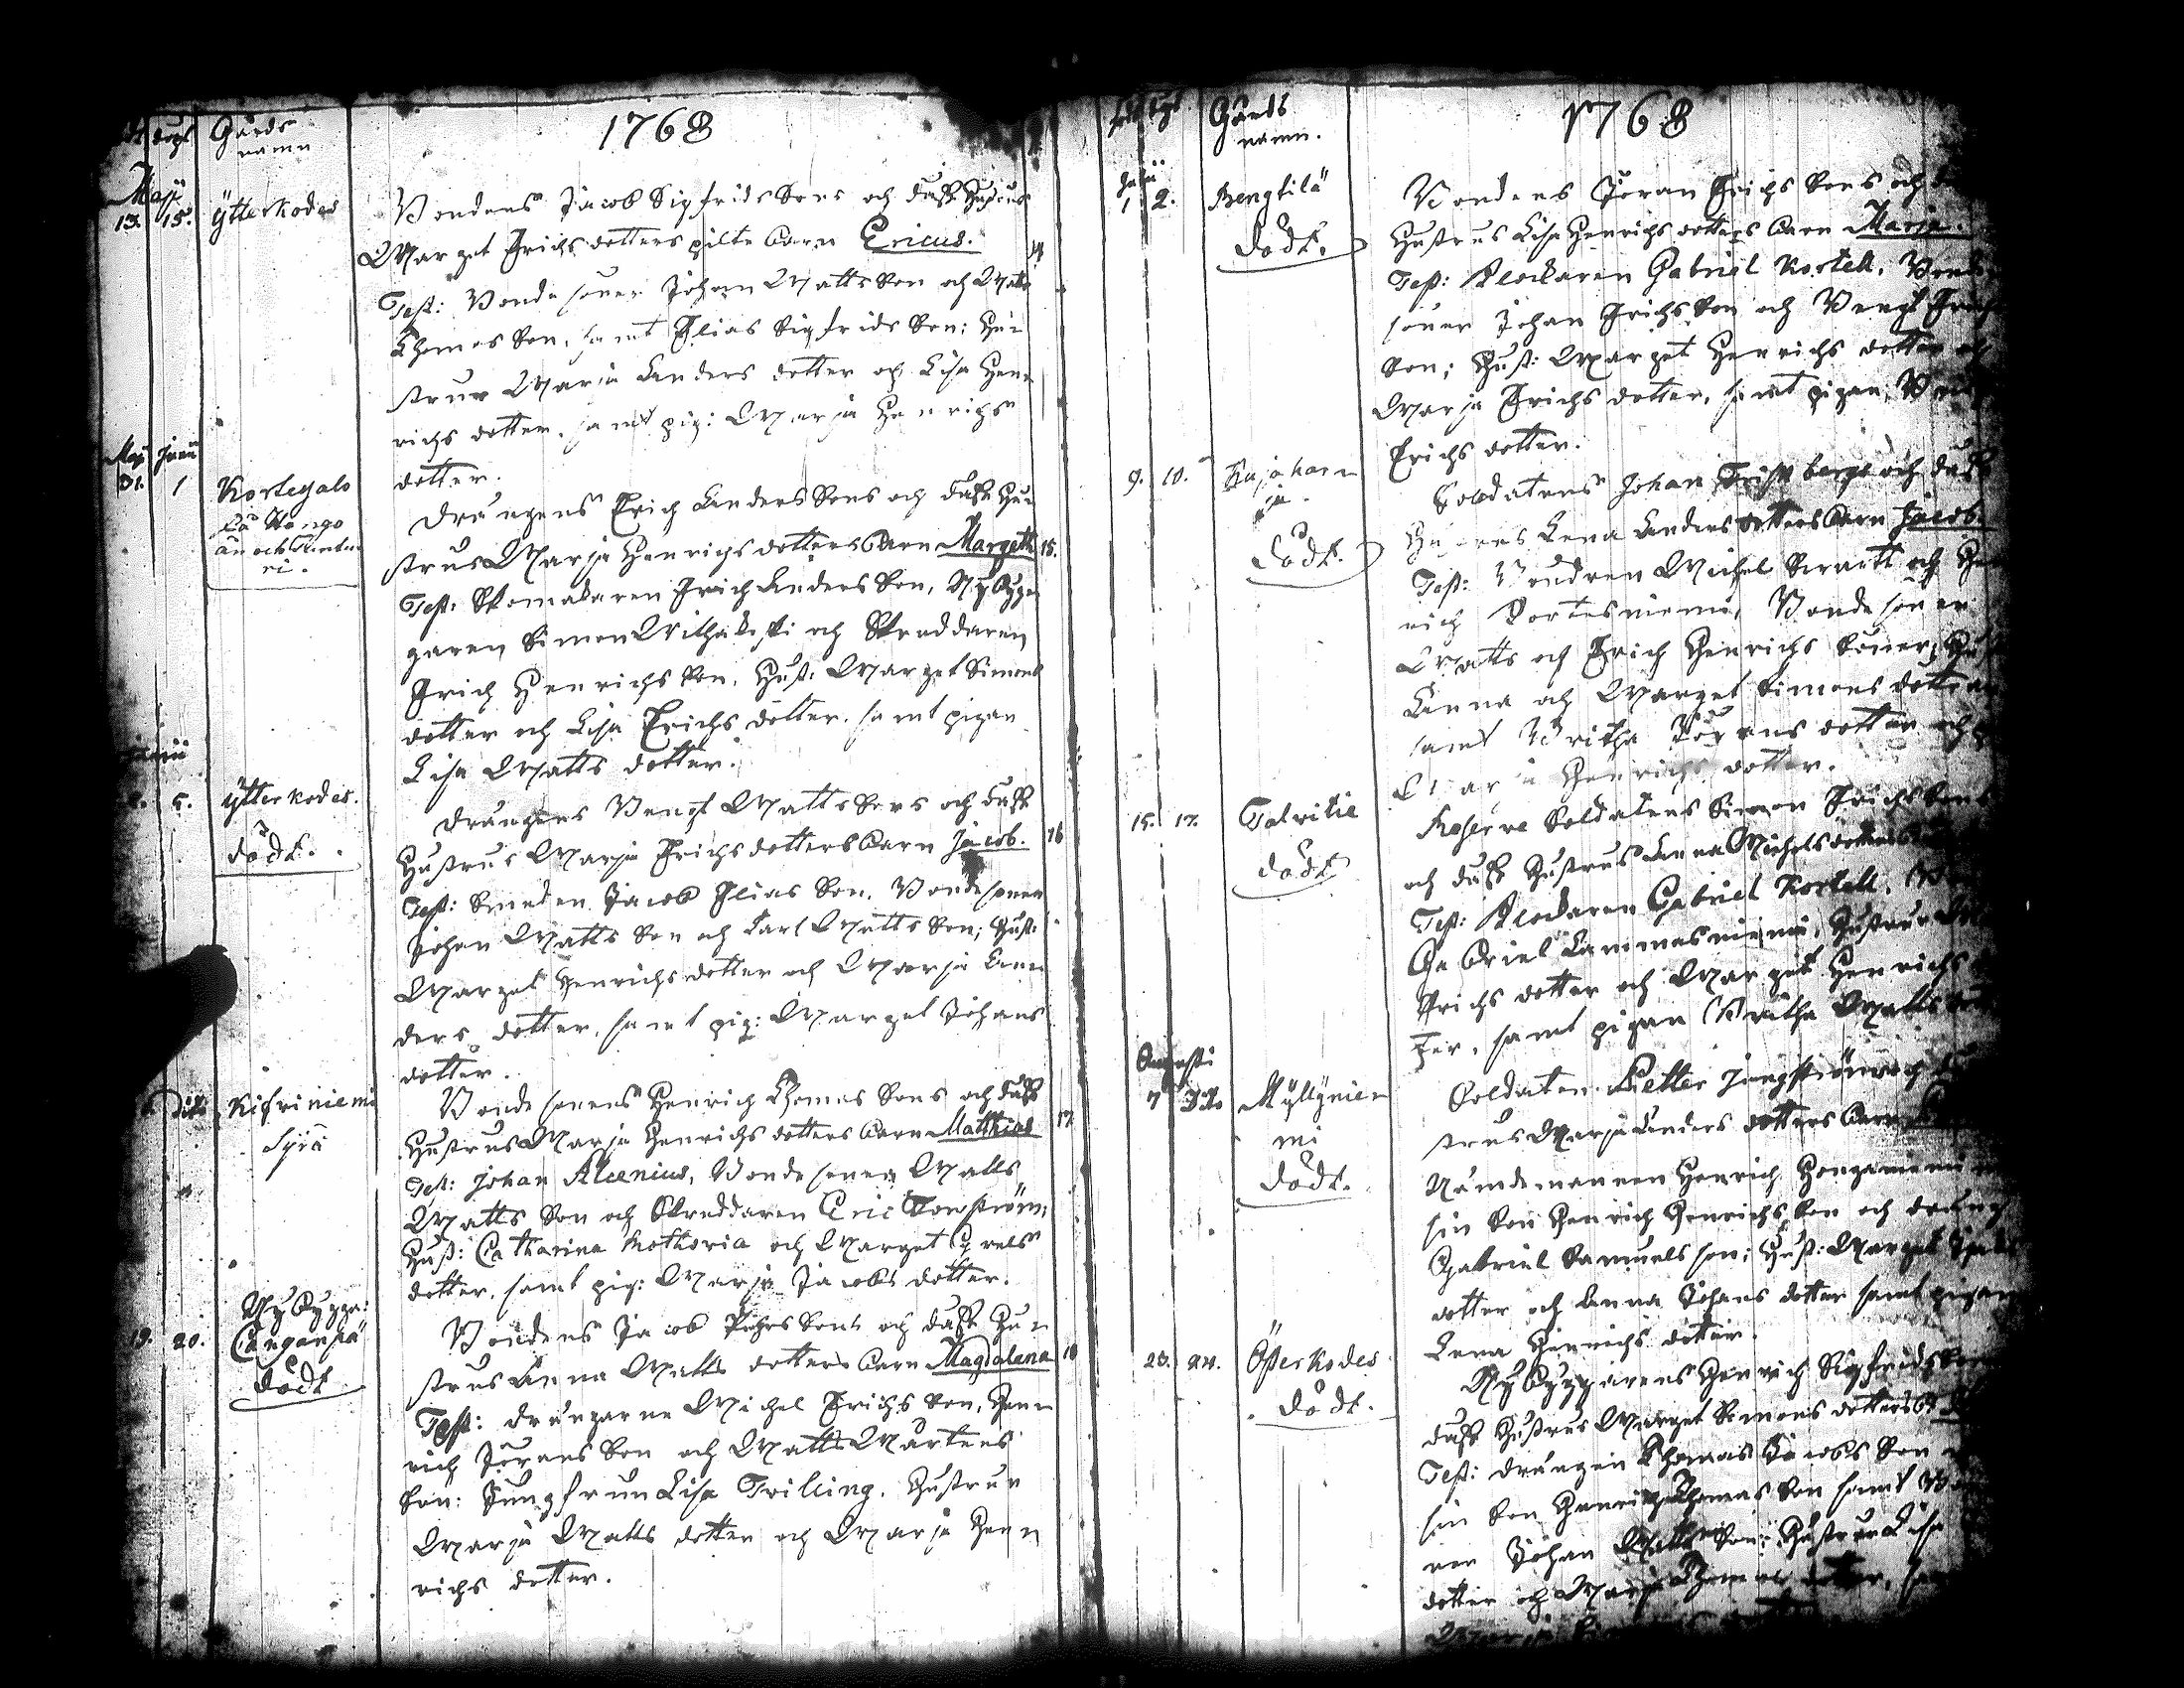 dt dopt Gårds
namn
1768
Maji
13. 15. Ytterkodes
Bondens Jacob Sigfrids Sons och dess Hustrus
Marget Erichs dotters pilte barn Ericus.
Test: Bonde soner Johan Matts Son och Matts
Thomas Son, samt Elias Sigfrids Son; Hu-
strur Marja Anders dotter och Lisa Hen-
richs dotter, samt pig: Marja Henrichs
dotter.
Maji Junii
31. 1 Korteyalo
Drängens Erich Anders Sons och dess Hu-
strus Marja Henrichs dotters barn Margeta 15.
Test: Skomakaren Erich Anders Son, Nybyg-
garen Simon och Skreddaren
Erich Henrichs Son, Hust: Marget Simons
dotter och Lisa Erichs dotter, samt pigan
Lisa Matts dotter.
5. Ytterkodes.
dödt.
Drängens Bengt Matts Sons och dess
Hustrus Marja Erichs dotters barn Jacob. 16
Test: Smeden Jacob Elias Son, Bondesonen
Johan Matts Son och Carl Matts Son; Hust:
Marget Henrichs dotter och Marja An-
ders dotter, samt pig: Marget Johans
dotter.
dito Kifriniemi
Syrä
Bonde sonens Henrich Thomas Sons och dess
Hustrus Marja Henrichs dotters barn Matthias 17
Test: Johan Alcenius, Bonde sonen Matts
Matts Son och Skreddaren Eric
Hust: Catharina Kothoria och Marget
dotter, samt pig: Marja Jacobs dotter.
Nybygga:
19. 20. Canganpä
dödt
Bondens Jacob Pehrs Sons och dess Hu-
strus Anna Matts dotters barn Magdalena 18
Test: drängarne Michel Erichs Son, Hen-
rich Jörans Son och Matts Mårtens
Son: Jungfrun Lisa Trilling, Hustrun
Marja Matts dotter och Marja Hen-
richs dotter.
Gårds
namn.
1768
Julii
1 2. Bengtilä
dödt.
Bondens Jöran Erichs Sons och
Hustrus Lisa Henrichs dotters barn Marja.
Test: Klockaren Gabriel Kortell, Bonde
soner Johan Erichs Son och Bengt Erichs
Son; Hust: Marget Henrichs dotter och
Marja Erichs dotter, samt pigan
Erichs dotter.
9. 10. Kujakan-
pä.
dödt.
Soldatens Johan Frisk bergs och dess
Hustrus Lena Anders dotters barn Jacob.
Test: Bonden Michel och Hen-
rich Portesniemi, Bonde soner
Matts och Erich Henrichs Söner; Hust
Anna och Marget Simons dotter
samt Britha Jörans dotter och
Marja Henrichs dotter.
15. 17. Talvitie
dödt
Reserve Soldatens Simon Erichs Sons
och dess Hustrus Anna Michels dotters
Test: Klockaren Gabriel Kortell.
Gabriel Lammasniemi, Hustrun
Erichs dotter och Marget Henrichs
ter, samt pigan Britha Matts
Augusti
7 Dito Myllynie-
mi
dödt.
Soldaten Petter
strus Marja Anders dotters barn
Nämdemannen Henrich
sin Son Henrich Henrichs Son och dräng
Gabriel Samuels son; Hust: Marget
dotter och Anna Johans dotter samt pigan
Lena Henrichs dotter.
23. 24. Österkodes
dödt.
Nybyggarens Henrich Sigfrids
dess Hustrus Marget Simons dotters
Test: drängen Thomas Jacobs Son
sin Son Henrich Thomas Son samt
ner Johan Matts Son; Hustrun Lisa
dotter och Marja Thomas dotter,